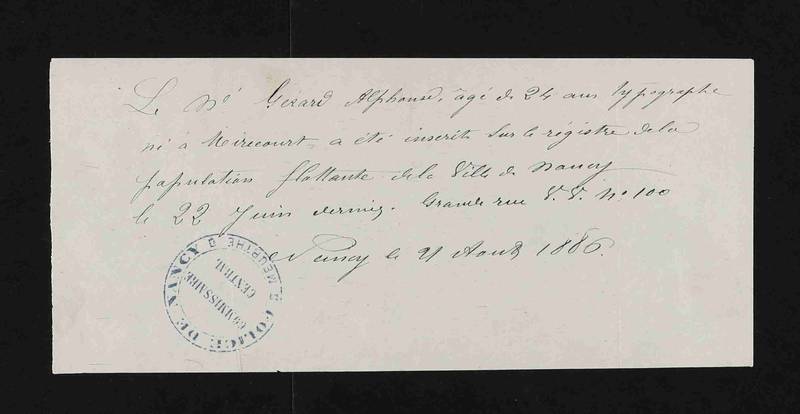 Le Sr Gérard Alphonse, âgé de 24 ans typographe
né à Mirecourt, a été inscrit sur le régistre de la
population flottante de la Ville de Nancy
le 22 Juin dernier. Grande rue V. V. No 100
Nancy le 21 Août 1886.
POLICE DE NANCY
MEURTHE
COMMISSAIRE
CENTRAL